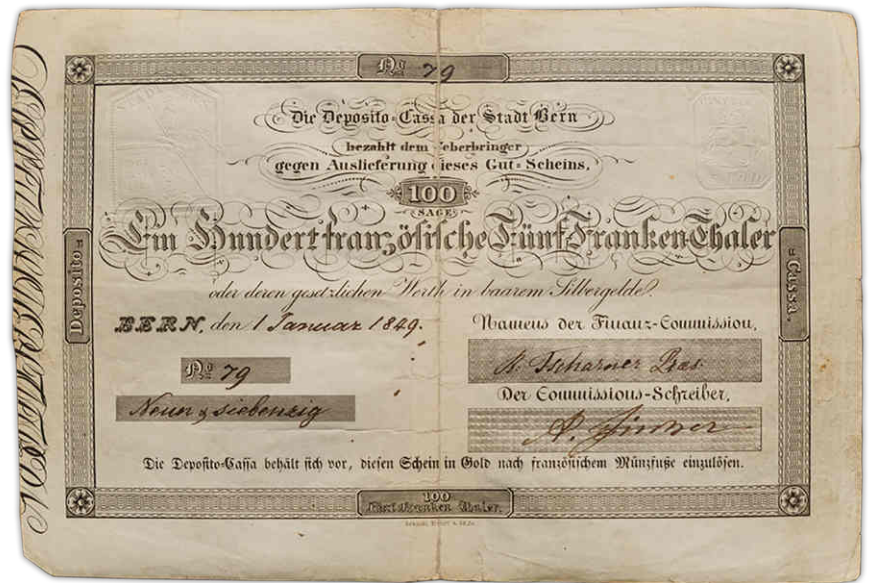 No 79
Die Deposito-Cassa der Stadt Bern
bezahlt dem Ueberbringer
gegen Auslieferung dieses Gut-Scheins,
100
(SAGE)
Ein Hundert französische Fünf Franken Thaler
oder deren gesetzlichen Werth in baarem Silbergelde.
BERN, den 1 Januar 1849.
Namens der Finanz-Commission,
No 79
Neun & siebenzig
Tscharner Präs.
Der Commissions-Schreiber,
Die Deposito-Cassa behält sich vor, diesen Schein in Gold nach französischem Münzfuße einzulösen.
Deposito=
=Cassa.
100
Fünf Franken Thaler.